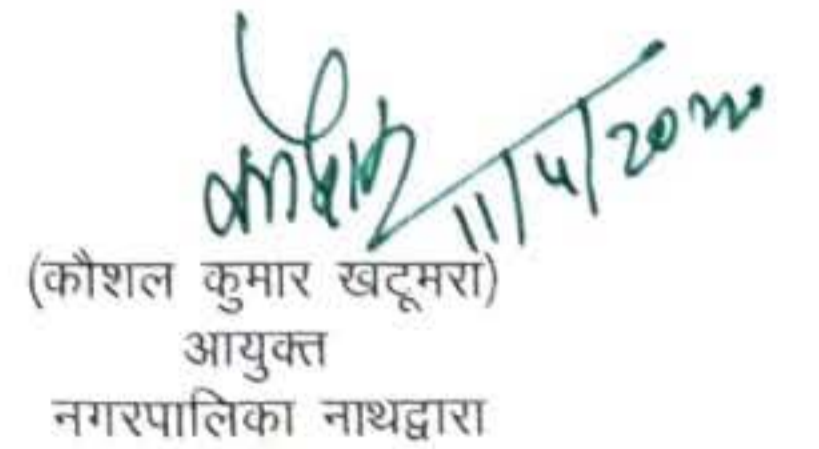 कौशल 11/4/2020
(कौशल कुमार खटूमरा)
आयुक्त
नगरपालिका नाथद्वारा